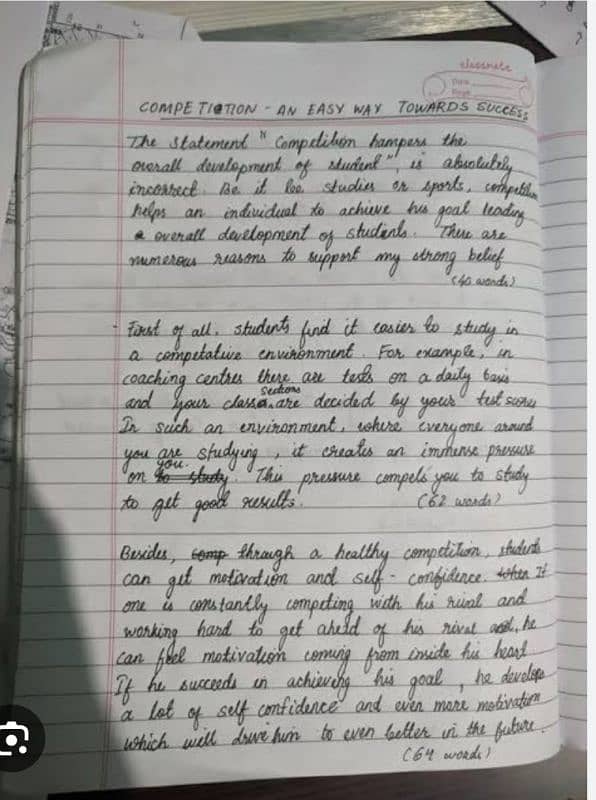 classmate
Date
Page
COMPETITION - AN EASY WAY TOWARDS SUCCESS
The statement "Competition hampers the
overall development of student", is absolutely
incorrect. Be it be studies or sports, competition
helps an individual to achieve his goal leading
overall development of students. There are
numerous reasons to support my strong belief
(40 words)
First of all, students find it easier to study in
a competative environment. For example, in
coaching centres there are tests on a daily basis
and your class sections are decided by your test scores
In such an environment, where everyone around
you are studying, it creates an immense pressure
on you. This pressure compels you to study
to get good results. (62 words)
Besides, through a healthy competition, students
can get motivation and self-confidence. If
one is constantly competing with his rival and
working hard to get ahead of his rival, he
can feel motivation coming from inside his heart.
If he succeeds in achieving his goal, he develops
a lot of self confidence and even more motivation
which will drive him to even better in the future.
(64 words)